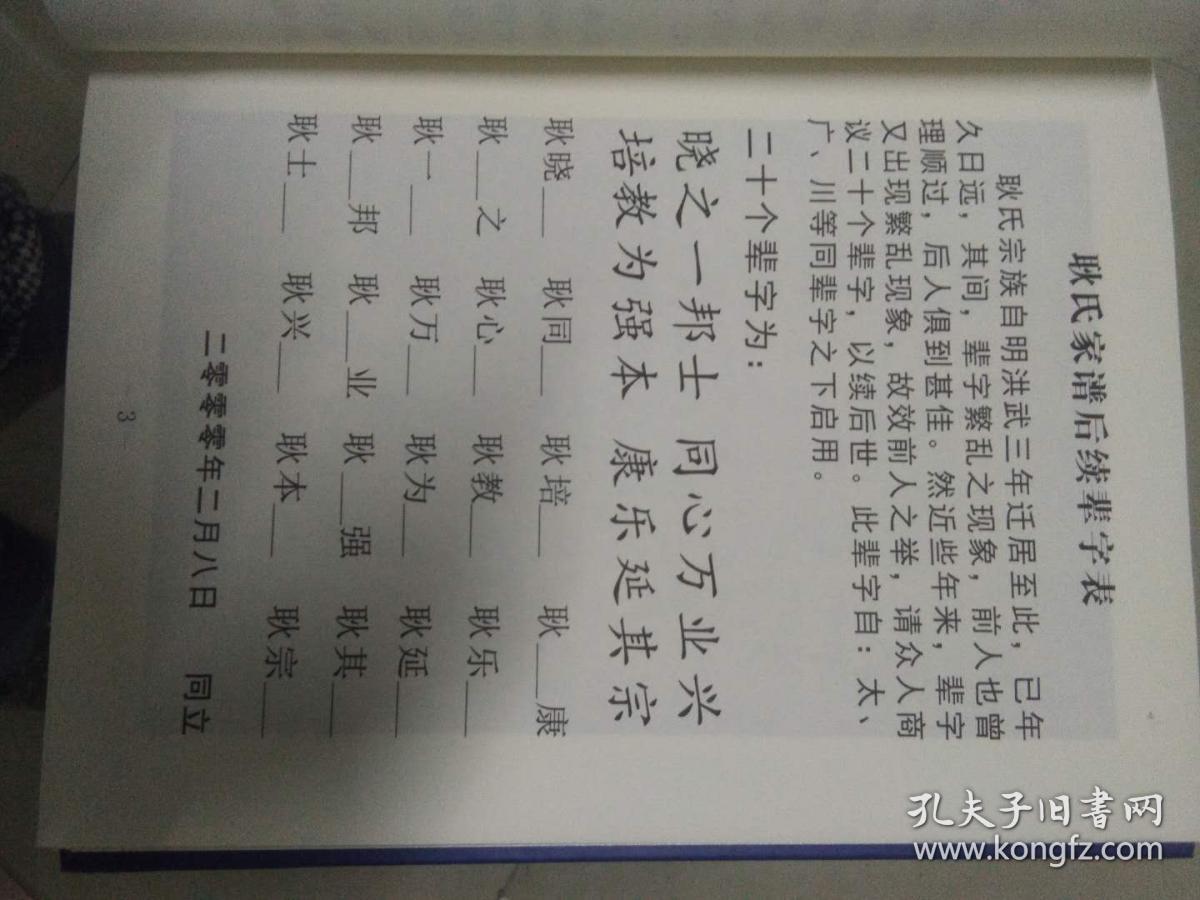 耿氏家谱后续辈字表
耿氏宗族自明洪武三年迁居至此，已年
久日远，其间，辈字繁乱之现象，前人也曾
理顺过，后人俱到甚佳。然近些年来，辈字
又出现繁乱现象，故效前人之举，请众人商
议二十个辈字，以续后世。此辈字自：太、
广、川等同辈字之下启用。
二十个辈字为：
晓之一邦士 同心万业兴
培教为强本 康乐延其宗
耿晓___ 耿同___ 耿培___ 耿___康
耿___之 耿心___ 耿教___ 耿乐___
耿一___ 耿万___ 耿为___ 耿延___
耿___邦 耿___业 耿___强 耿其___
耿士___ 耿兴___ 耿本___ 耿宗___
二零零零年二月八日 同立
3
孔夫子旧书网
www.kongfz.com